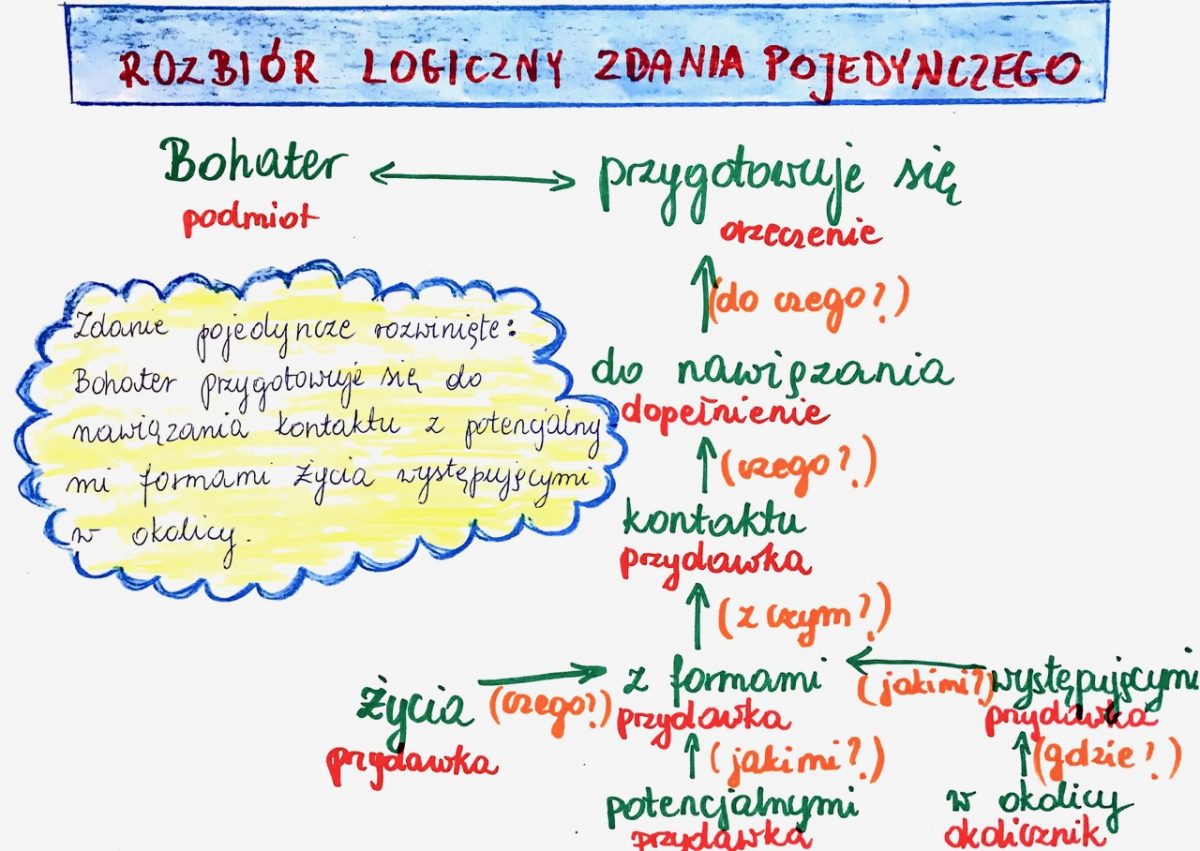 ROZBIÓR LOGICZNY ZDANIA POJEDYNCZEGO
Bohater przygotowuje się
podmiot orzeczenie
(do czego?)
do nawiązania
dopełnienie
Zdanie pojedyncze rozwinięte:
Bohater przygotowuje się do
nawiązania kontaktu z potencjalny
mi formami życia występującymi
w okolicy.
(czego?)
kontaktu
przydawka
(z czym?)
życia (czego?) z formami (jakimi?) występującymi
przydawka przydawka przydawka
(jakimi?) (gdzie?)
potencjalnymi w okolicy
przydawka okolicznik